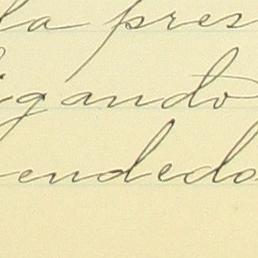 la pres
igando
endedo